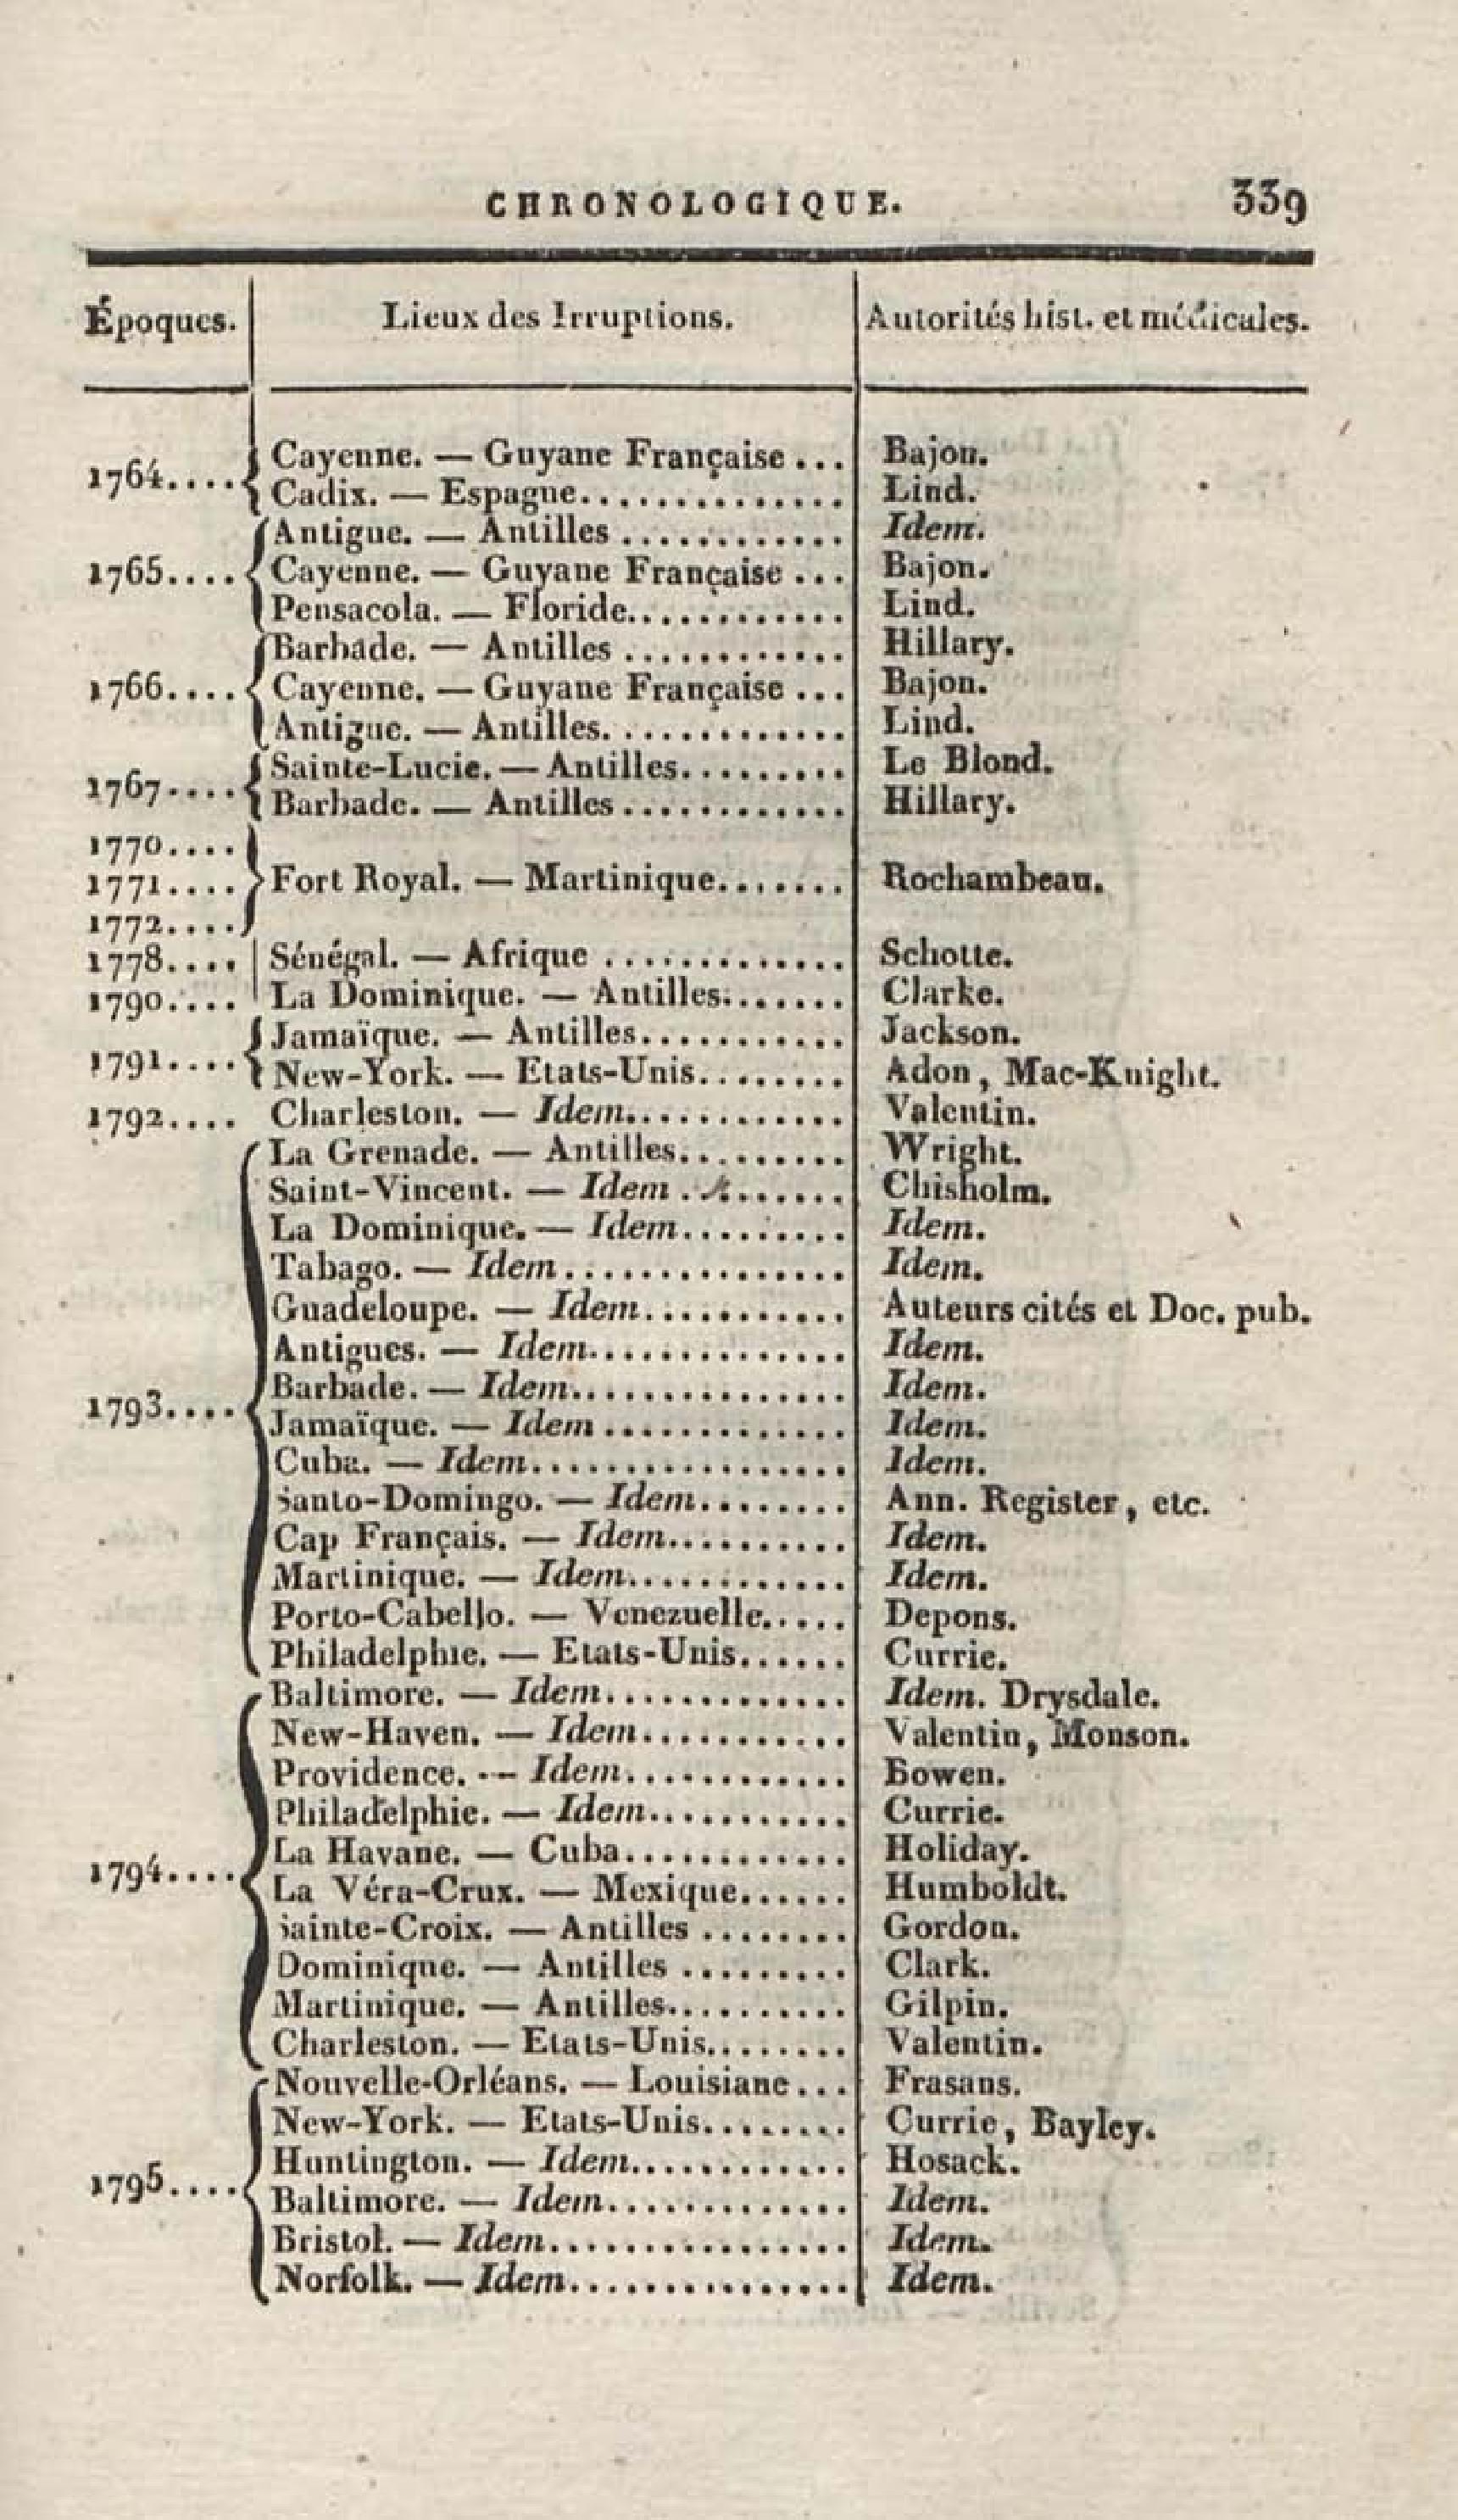 CHRONOLOGIQUE. 339
Époques. Lieux des Irruptions. Autorités hist. et médicales.
1764.... Cayenne. — Guyane Française... Bajon.
Cadix. — Espagne.............. Lind.
Antigue. — Antilles............ Idem.
1765.... Cayenne. — Guyane Française... Bajon.
Pensacola. — Floride............ Lind.
Barbade. — Antilles............ Hillary.
1766.... Cayenne. — Guyane Française... Bajon.
Antigue. — Antilles............. Lind.
1767.... Sainte-Lucie. — Antilles......... Le Blond.
Barbade. — Antilles............ Hillary.
1770....
1771.... Fort Royal. — Martinique....... Rochambeau.
1772....
1778.... Sénégal. — Afrique............. Schotte.
1790.... La Dominique. — Antilles....... Clarke.
1791.... Jamaïque. — Antilles........... Jackson.
New-York. — Etats-Unis........ Adon, Mac-Knight.
1792.... Charleston. — Idem............ Valentin.
La Grenade. — Antilles......... Wright.
Saint-Vincent. — Idem........ Chisholm.
La Dominique. — Idem......... Idem.
Tabago. — Idem............... Idem.
Guadeloupe. — Idem........... Auteurs cités et Doc. pub.
Antigues. — Idem.............. Idem.
1793.... Barbade. — Idem............... Idem.
Jamaïque. — Idem............. Idem.
Cuba. — Idem................. Idem.
Santo-Domingo. — Idem........ Ann. Register, etc.
Cap Français. — Idem.......... Idem.
Martinique. — Idem............ Idem.
Porto-Cabello. — Venezuelle..... Depons.
Philadelphie. — Etats-Unis...... Currie.
Baltimore. — Idem............. Idem. Drysdale.
New-Haven. — Idem........... Valentin, Monson.
Providence. — Idem............ Bowen.
Philadelphie. — Idem........... Currie.
1794.... La Havane. — Cuba............ Holiday.
La Véra-Crux. — Mexique...... Humboldt.
Sainte-Croix. — Antilles........ Gordon.
Dominique. — Antilles......... Clark.
Martinique. — Antilles.......... Gilpin.
Charleston. — Etats-Unis........ Valentin.
Nouvelle-Orléans. — Louisiane... Frasans.
New-York. — Etats-Unis........ Currie, Bayley.
1795.... Huntington. — Idem............ Hosack.
Baltimore. — Idem............. Idem.
Bristol. — Idem................ Idem.
Norfolk. — Idem............... Idem.